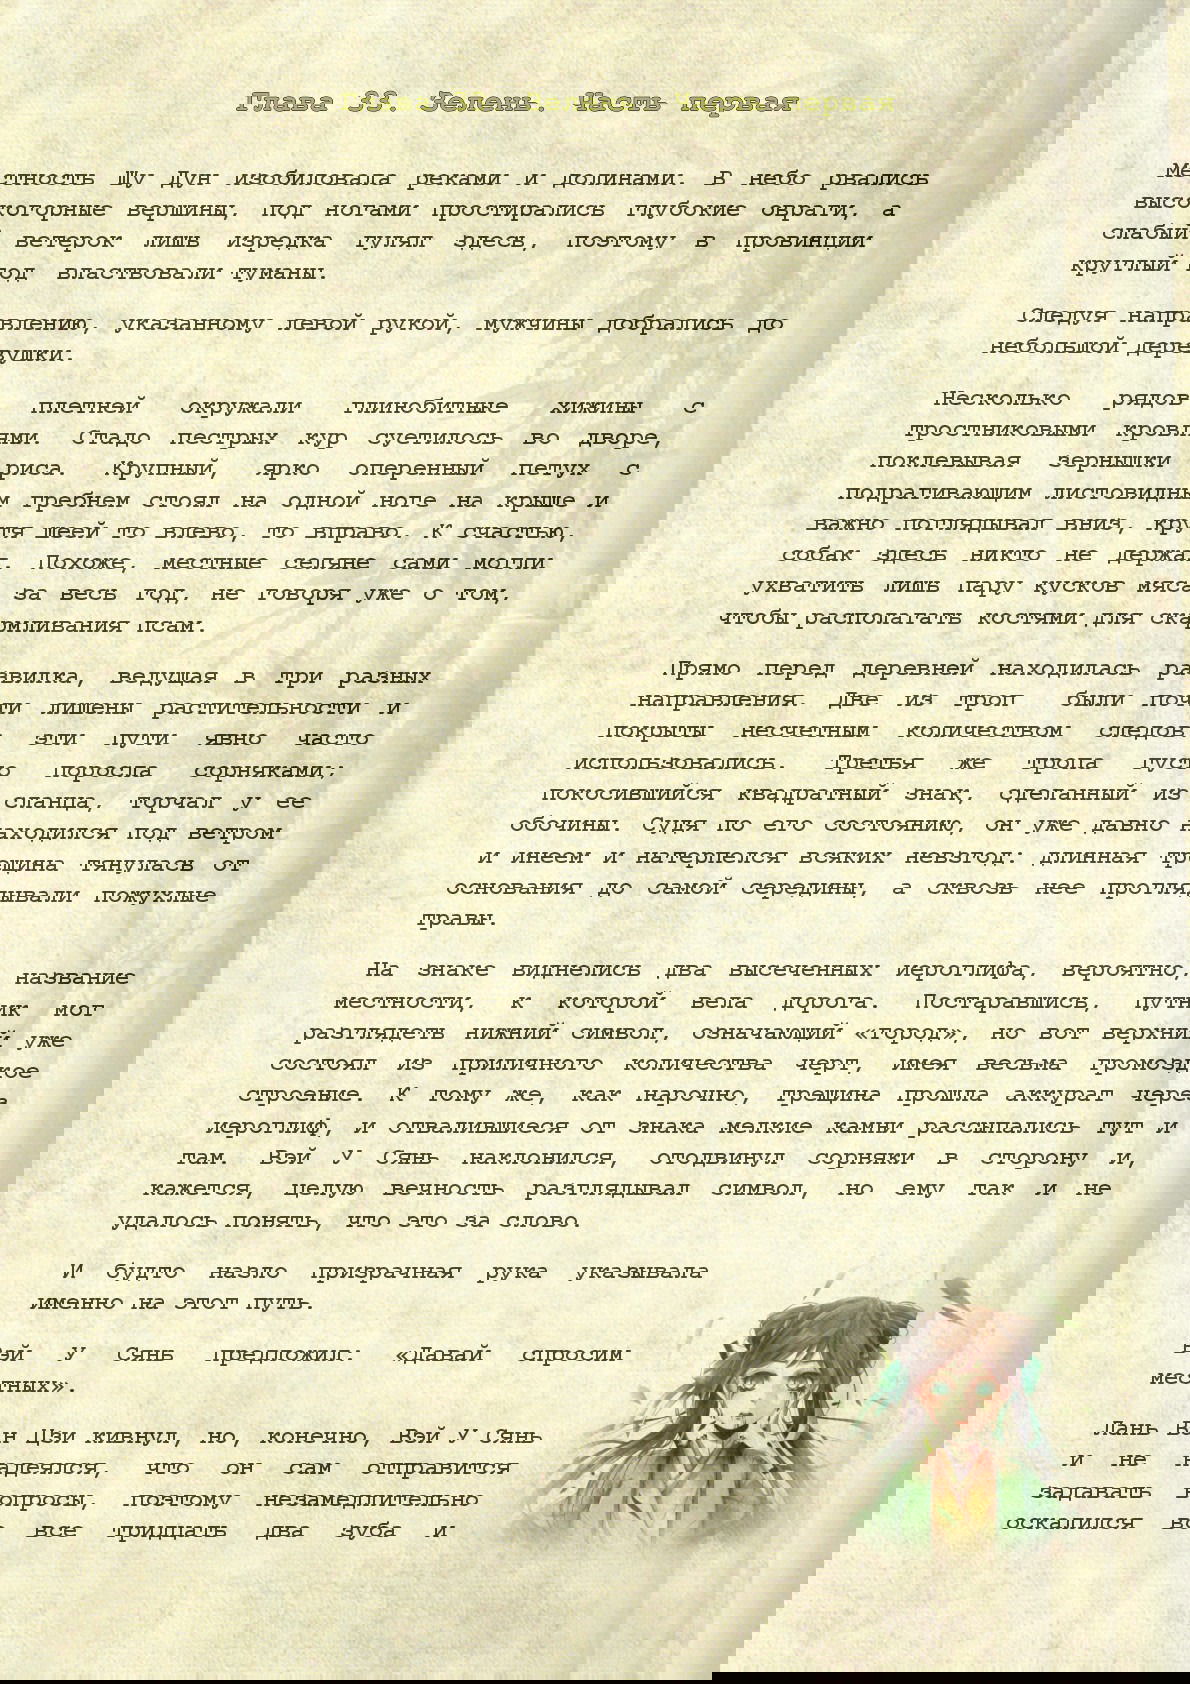 Глава 33. Зелень. Часть первая
Местность Шу Дун изобиловала реками и долинами. В небо рвались
высокогорные вершины, под ногами простирались глубокие овраги, а
слабый ветерок лишь изредка гулял здесь, поэтому в провинции
круглый год властвовали туманы.
Следуя направлению, указанному левой рукой, мужчины добрались до
небольшой деревушки.
Несколько рядов плетней окружали глинобитные хижины с
тростниковыми кровлями. Стадо пестрых кур суетилось во дворе,
поклевывая зернышки риса. Крупный, ярко оперенный петух с
подрагивающим листовидным гребнем стоял на одной ноге на крыше и
важно поглядывал вниз, крутя шеей то влево, то вправо. К счастью,
собак здесь никто не держал. Похоже, местные селяне сами могли
ухватить лишь пару кусков мяса за весь год, не говоря уже о том,
чтобы располагать костями для скармливания псам.
Прямо перед деревней находилась развилка, ведущая в три разных
направления. Две из троп были почти лишены растительности и
покрыты несчетным количеством следов; эти пути явно часто
использовались. Третья же тропа густо поросла сорняками;
покосившийся квадратный знак, сделанный из сланца, торчал у ее
обочины. Судя по его состоянию, он уже давно находился под ветром
и инеем и натерпелся всяких невзгод: длинная трещина тянулась от
основания до самой середины, а сквозь нее проглядывали пожухлые
травы.
На знаке виднелись два высеченных иероглифа, вероятно, название
местности, к которой вела дорога. Постаравшись, путник мог
разглядеть нижний символ, означающий «город», но вот верхний уже
состоял из приличного количества черт, имея весьма громоздкое
строение. К тому же, как нарочно, трещина прошла аккурат через
иероглиф, и отвалившиеся от знака мелкие камни рассыпались тут и
там. Вэй У Сянь наклонился, отодвинул сорняки в сторону и,
кажется, целую вечность разглядывал символ, но ему так и не
удалось понять, что это за слово.
И будто назло призрачная рука указывала
именно на этот путь.
Вэй У Сянь предложил: «Давай спросим
местных».
Лань Ван Цзи кивнул, но, конечно, Вэй У Сянь
и не надеялся, что он сам отправится
задавать вопросы, поэтому незамедлительно
оскалился во все тридцать два зуба и